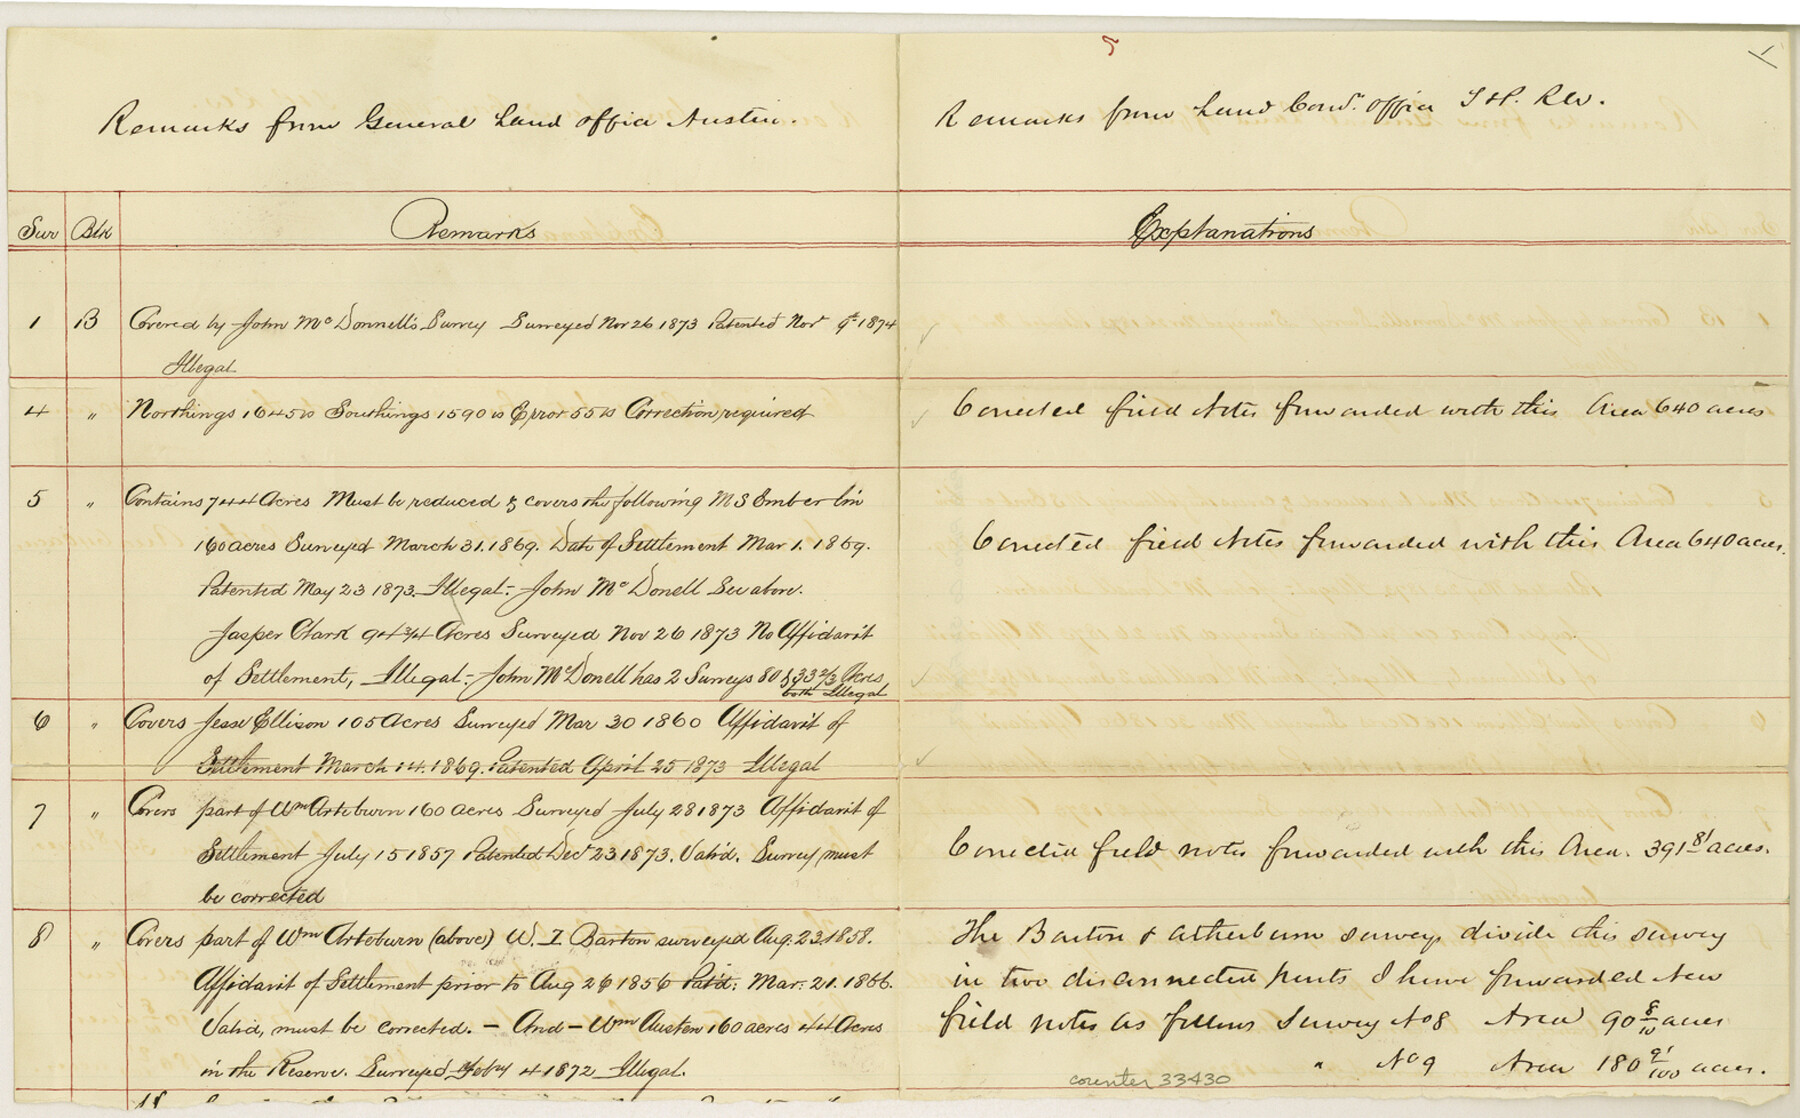 Remarks from General Land Office Austin.
Remarks from Land Comr. office T & P. Rw.
Sur Blk Remarks
Explanations
1 B Covered by John McDonnell's Survey Surveyed Nov 26 1873 Patented Novr 9th 1874
Illegal
4 " Northings 1645 vs Southings 1590 vs Error 55 vs Correction required
Corrected field Notes forwarded with this Area 640 acres
5 " Contains 744 Acres Must be reduced & covers the following M S Emberlin
160 acres Surveyed March 31. 1869. Date of Settlement Mar 1. 1869.
Patented May 23 1873. Illegal - John McDonell See above.
Jasper Clark 94 3/4 Acres Surveyed Nov 26 1873 No Affidavit
of Settlement, Illegal - John McDonell has 2 Surveys 80 & 33 2/3 Acres
both Illegal
Corrected field Notes forwarded with this Area 640 acres.
6 " Covers Jesse Ellison 105 Acres Surveyed Mar 30 1860 Affidavit of
Settlement March 14. 1869. Patented April 25 1873 Illegal
7 " Covers part of Wm Arteburn 160 acres Surveyed July 28 1873 Affidavit of
Settlement July 15 1857 Patented Dec 23 1873. Valid. Survey must
be corrected
Corrected field notes forwarded with this Area. 391 81 acres.
8 " Covers part of Wm Arteburn (above) W. I Barton surveyed Aug. 23. 1858.
Affidavit of Settlement prior to Aug 26 1856 Pat'd. Mar. 21. 1866.
Valid, must be corrected. - And - Wm Austen 160 acres 44 Acres
in the Reserve. Surveyed Feby 4 1872 Illegal.
The Barton & Atherburn surveys divide this survey
in two disconnected parts I have forwarded New
field notes as follows Survey No 8 Area 90 8/10 acres
" No 9 Area 180 91/100 acres.
counter 33430